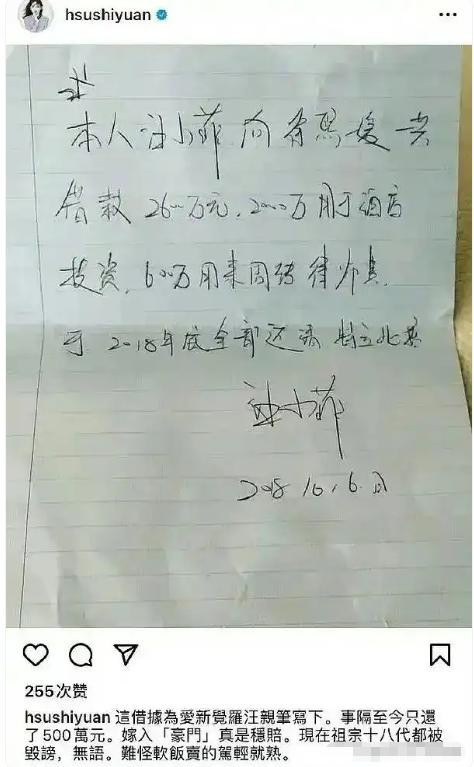 hsushiyuan
本人汪小菲向徐熙媛共
借款2600万元,2000万用于酒店
投资,600万用来周转
于2018年底全部还清 特立此
汪小菲
2018 10.6.日
255次赞
hsushiyuan 這借據為愛新覺羅汪親筆寫下。事隔至今只還
了500萬元。嫁入「豪門」真是穩賠。現在祖宗十八代都被
毀謗,無語。難怪軟飯賣的駕輕就熟。